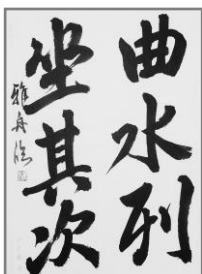 曲水列
坐其次
雅舟临